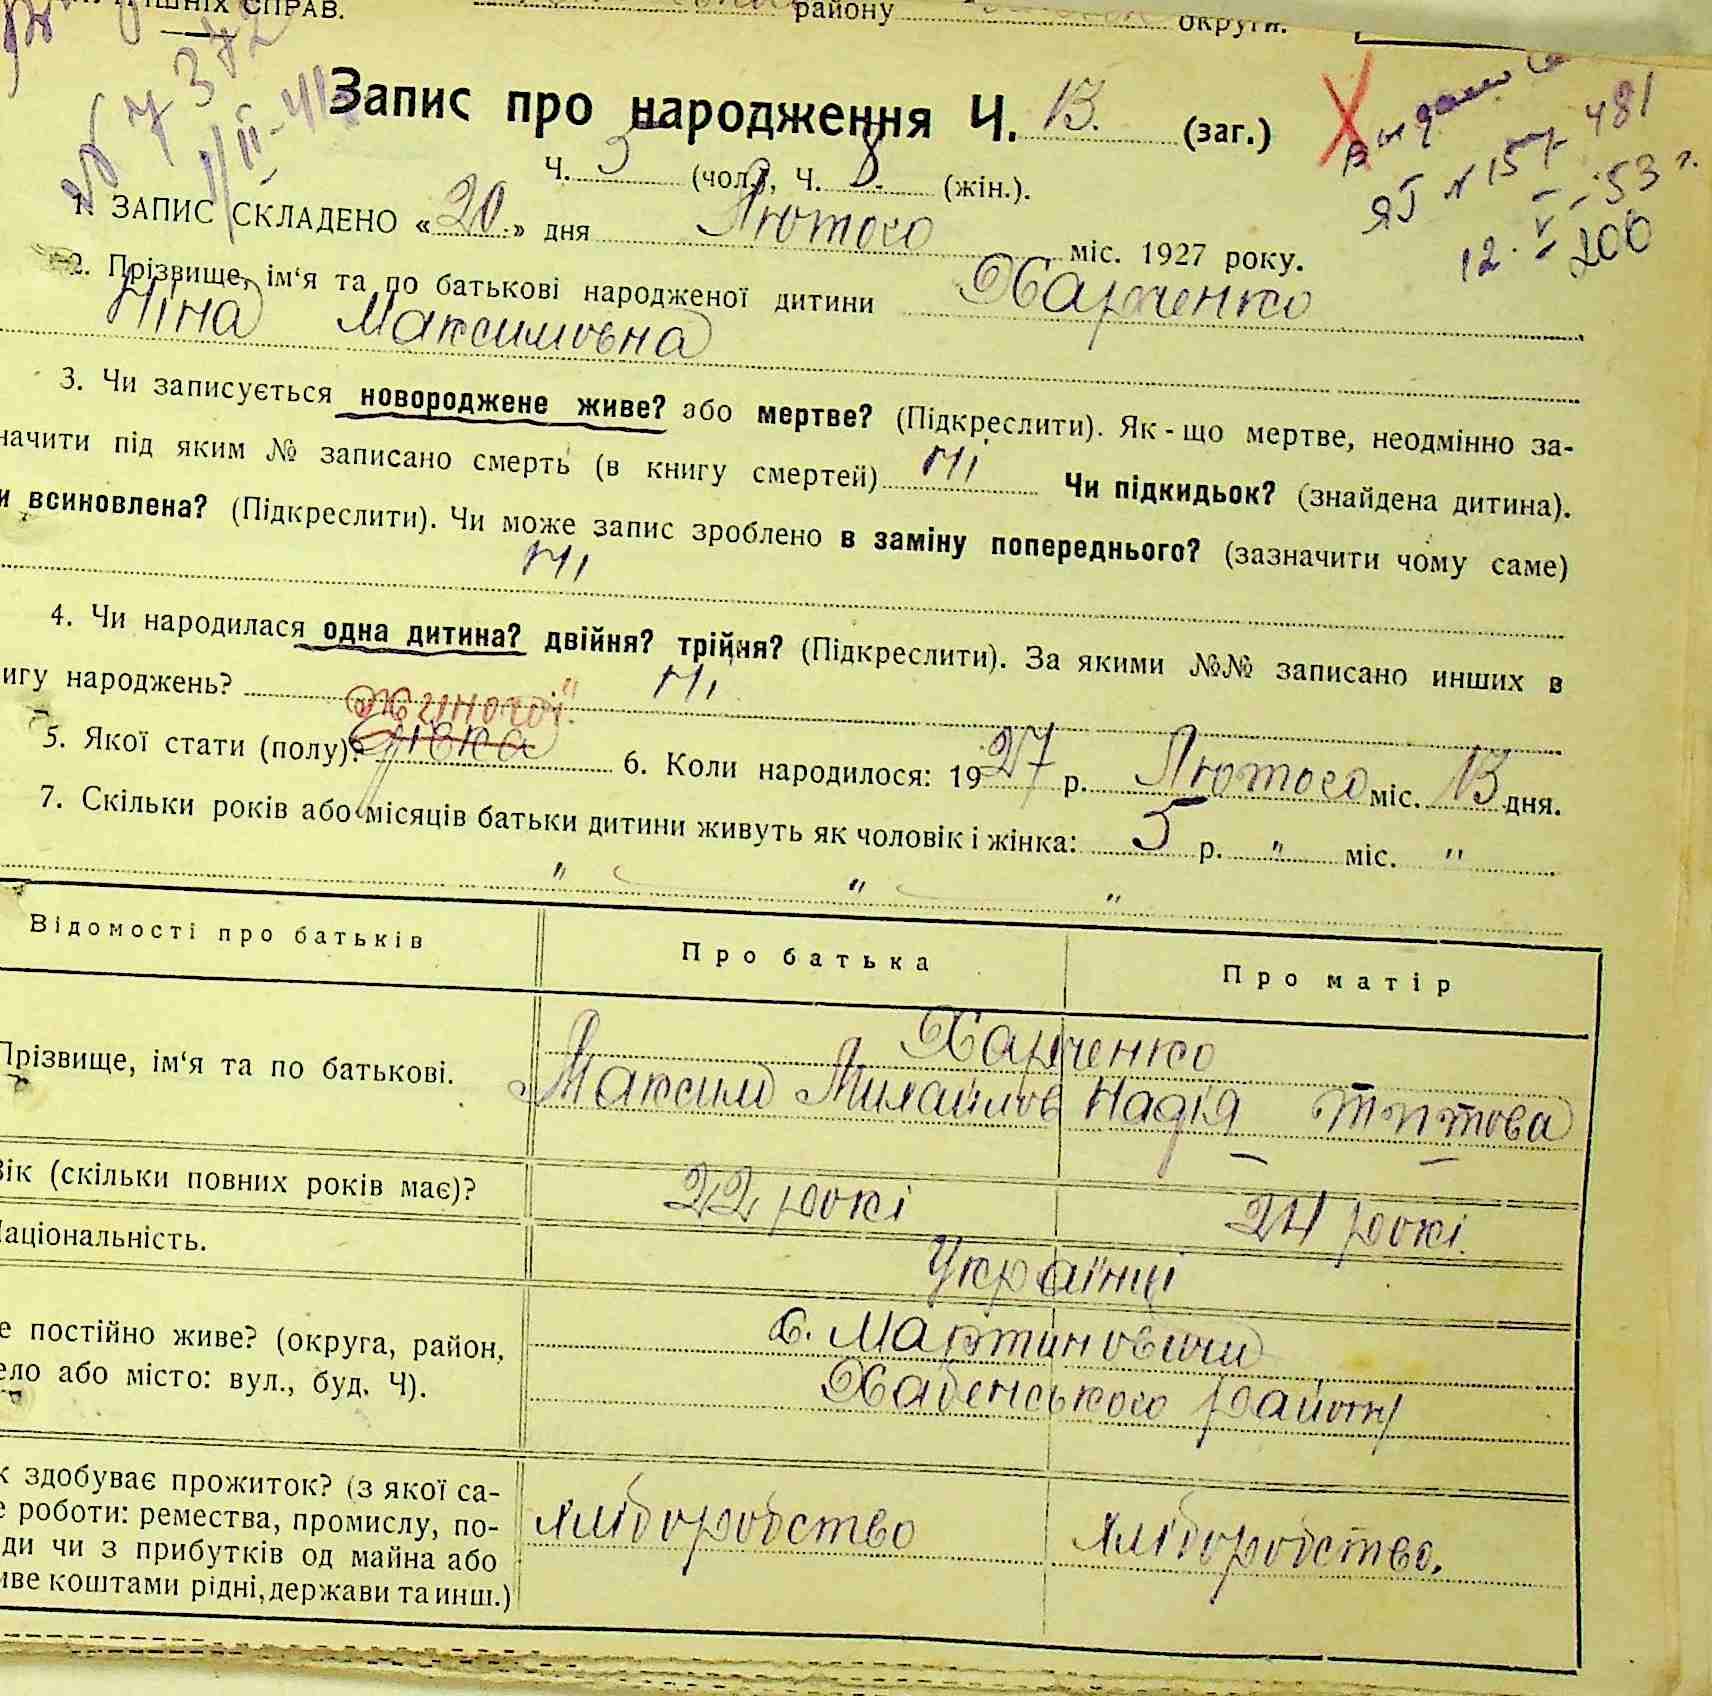 ШНІХ СПРАВ. району округи.
№ 7 372
Запис про народження Ч. 13. (заг.)
ЯБ № 157 481
Ч. 5 (чол.), Ч. 8. (жін.).
12. V – 53 г.
200
1. ЗАПИС СКЛАДЕНО «20» дня Лютого міс. 1927 року.
2. Прізвище, ім‘я та по батькові народженої дитини Харченко
Ніна Максимовна
3. Чи записується новороджене живе? або мертве? (Підкреслити). Як-що мертве, неодмінно за-
начити під яким № записано смерть (в книгу смертей) Ні Чи підкидьок? (знайдена дитина).
и всиновлена? (Підкреслити). Чи може запис зроблено в заміну попереднього? (зазначити чому саме)
Ні
4. Чи народилася одна дитина? двійня? трійня? (Підкреслити). За якими №№ записано инших в
игу народжень? Ні
Жіночої
5. Якої стати (полу)? дівка 6. Коли народилося: 1927 р. Лютого міс. 13 дня.
7. Скільки років або місяців батьки дитини живуть як чоловік і жінка: 5 р. " міс. "
" " "
Відомості про батьків Про батька Про матір
Прізвище, ім‘я та по батькові. Харченко
Максим Михайлов Надія Титова
Вік (скільки повних років має)? 22 рокі 24 рокі.
Національність. Українці
е постійно живе? (округа, район, с. Мартиновичи
ело або місто: вул., буд. Ч). Хабенського району
к здобуває прожиток? (з якої са-
е роботи: ремества, промислу, по- хліборобство хліборобство.
ди чи з прибутків од майна або
иве коштами рідні, держави та инш.)